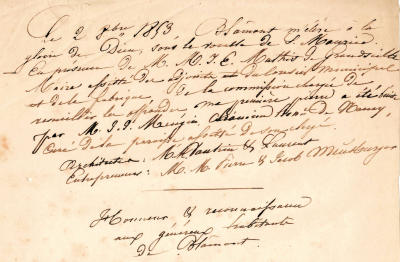 Le 2 8bre 1853 Blamont m'élève à la
gloire de Dieu, sous le vocable de S. Maurice
En présence de M. M. J. E. Mathis de Grandseille
Maire assisté des adjoints du Conseil municipal
et de la fabrique. De la commission chargé de
recueillir les offrandes ma première pierre a été bénite
par M. J. J. Chanoine hon. de Nancy,
Curé de la paroisse assisté de son clergé.
Architectes : M. M. Vautrin & Laurent
Entrepreneurs : M. M. Pierre & Jacob
Honneur & reconnaissance
aux généreux habitants
de Blamont.